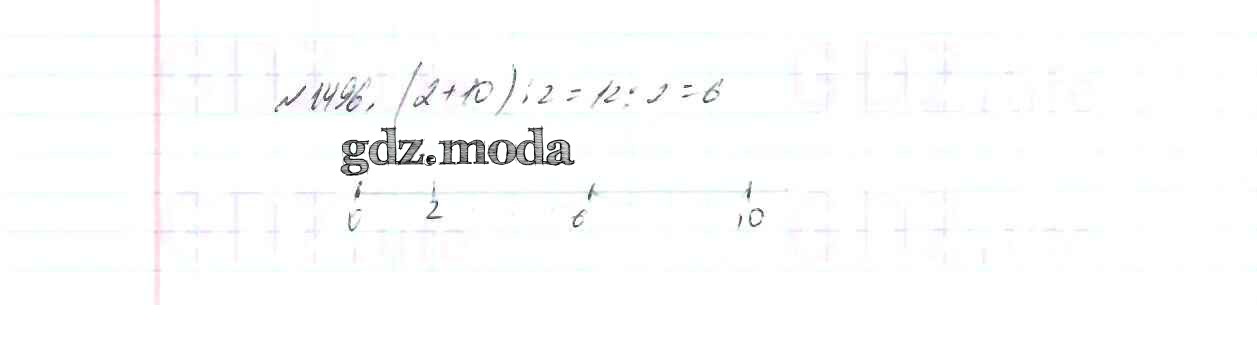 №1496. (2+10):2=12:2=6
gdz.moda
0 2 6 10